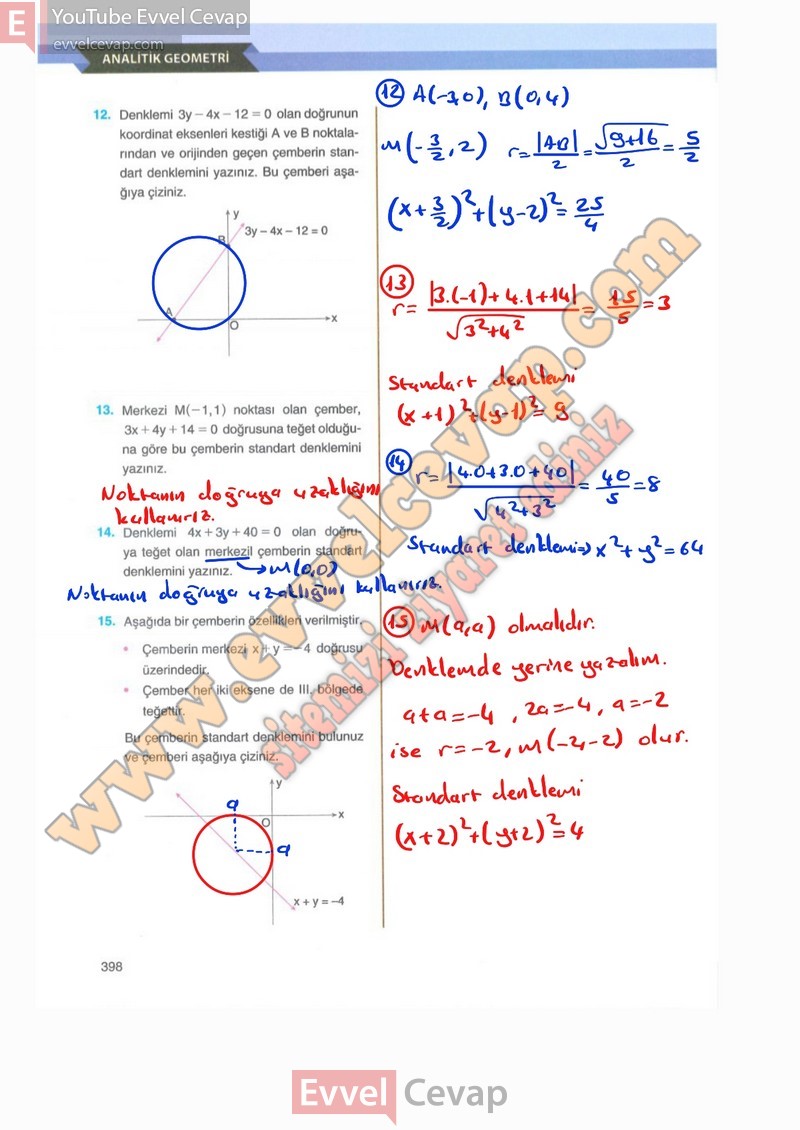 E YouTube Evvel Cevap
evvelcevap.com
ANALİTİK GEOMETRİ
12. Denklemi 3y – 4x – 12 = 0 olan doğrunun
koordinat eksenleri kestiği A ve B noktala-
rından ve orijinden geçen çemberin stan-
dart denklemini yazınız. Bu çemberi aşa-
ğıya çiziniz.
y
3y – 4x – 12 = 0
B
A
O
x
13. Merkezi M(–1,1) noktası olan çember,
3x + 4y + 14 = 0 doğrusuna teğet olduğu-
na göre bu çemberin standart denklemini
yazınız.
Noktanın doğruya uzaklığını
kullanırız.
14. Denklemi 4x + 3y + 40 = 0 olan doğru-
ya teğet olan merkezil çemberin standart
denklemini yazınız. → M(0,0)
Noktanın doğruya uzaklığını kullanırız.
15. Aşağıda bir çemberin özellikleri verilmiştir.
• Çemberin merkezi x + y = – 4 doğrusu
üzerindedir.
• Çember her iki eksene de III. bölgede
teğettir.
Bu çemberin standart denklemini bulunuz
ve çemberi aşağıya çiziniz.
y
a
x
O
a
x + y = –4
398
12 A(-3,0), B(0,4)
M(-3/2, 2) r = |AB|/2 = √9+16/2 = 5/2
(x+3/2)²+(y-2)²=25/4
13 r = |3.(-1)+4.1+14|/√3²+4² = 15/5 = 3
Standart denklemi
(x+1)²+(y-1)²=9
14 r = |4.0+3.0+40|/√4²+3² = 40/5 = 8
Standart denklemi⇒ x²+y²=64
15 M(a,a) olmalıdır.
Denklemde yerine yazalım.
a+a=-4, 2a=-4, a=-2
ise r=-2, M(-2,-2) olur.
Standart denklemi
(x+2)²+(y+2)²=4
www.evvelcevap.com
sitemizi ziyaret ediniz
Evvel Cevap